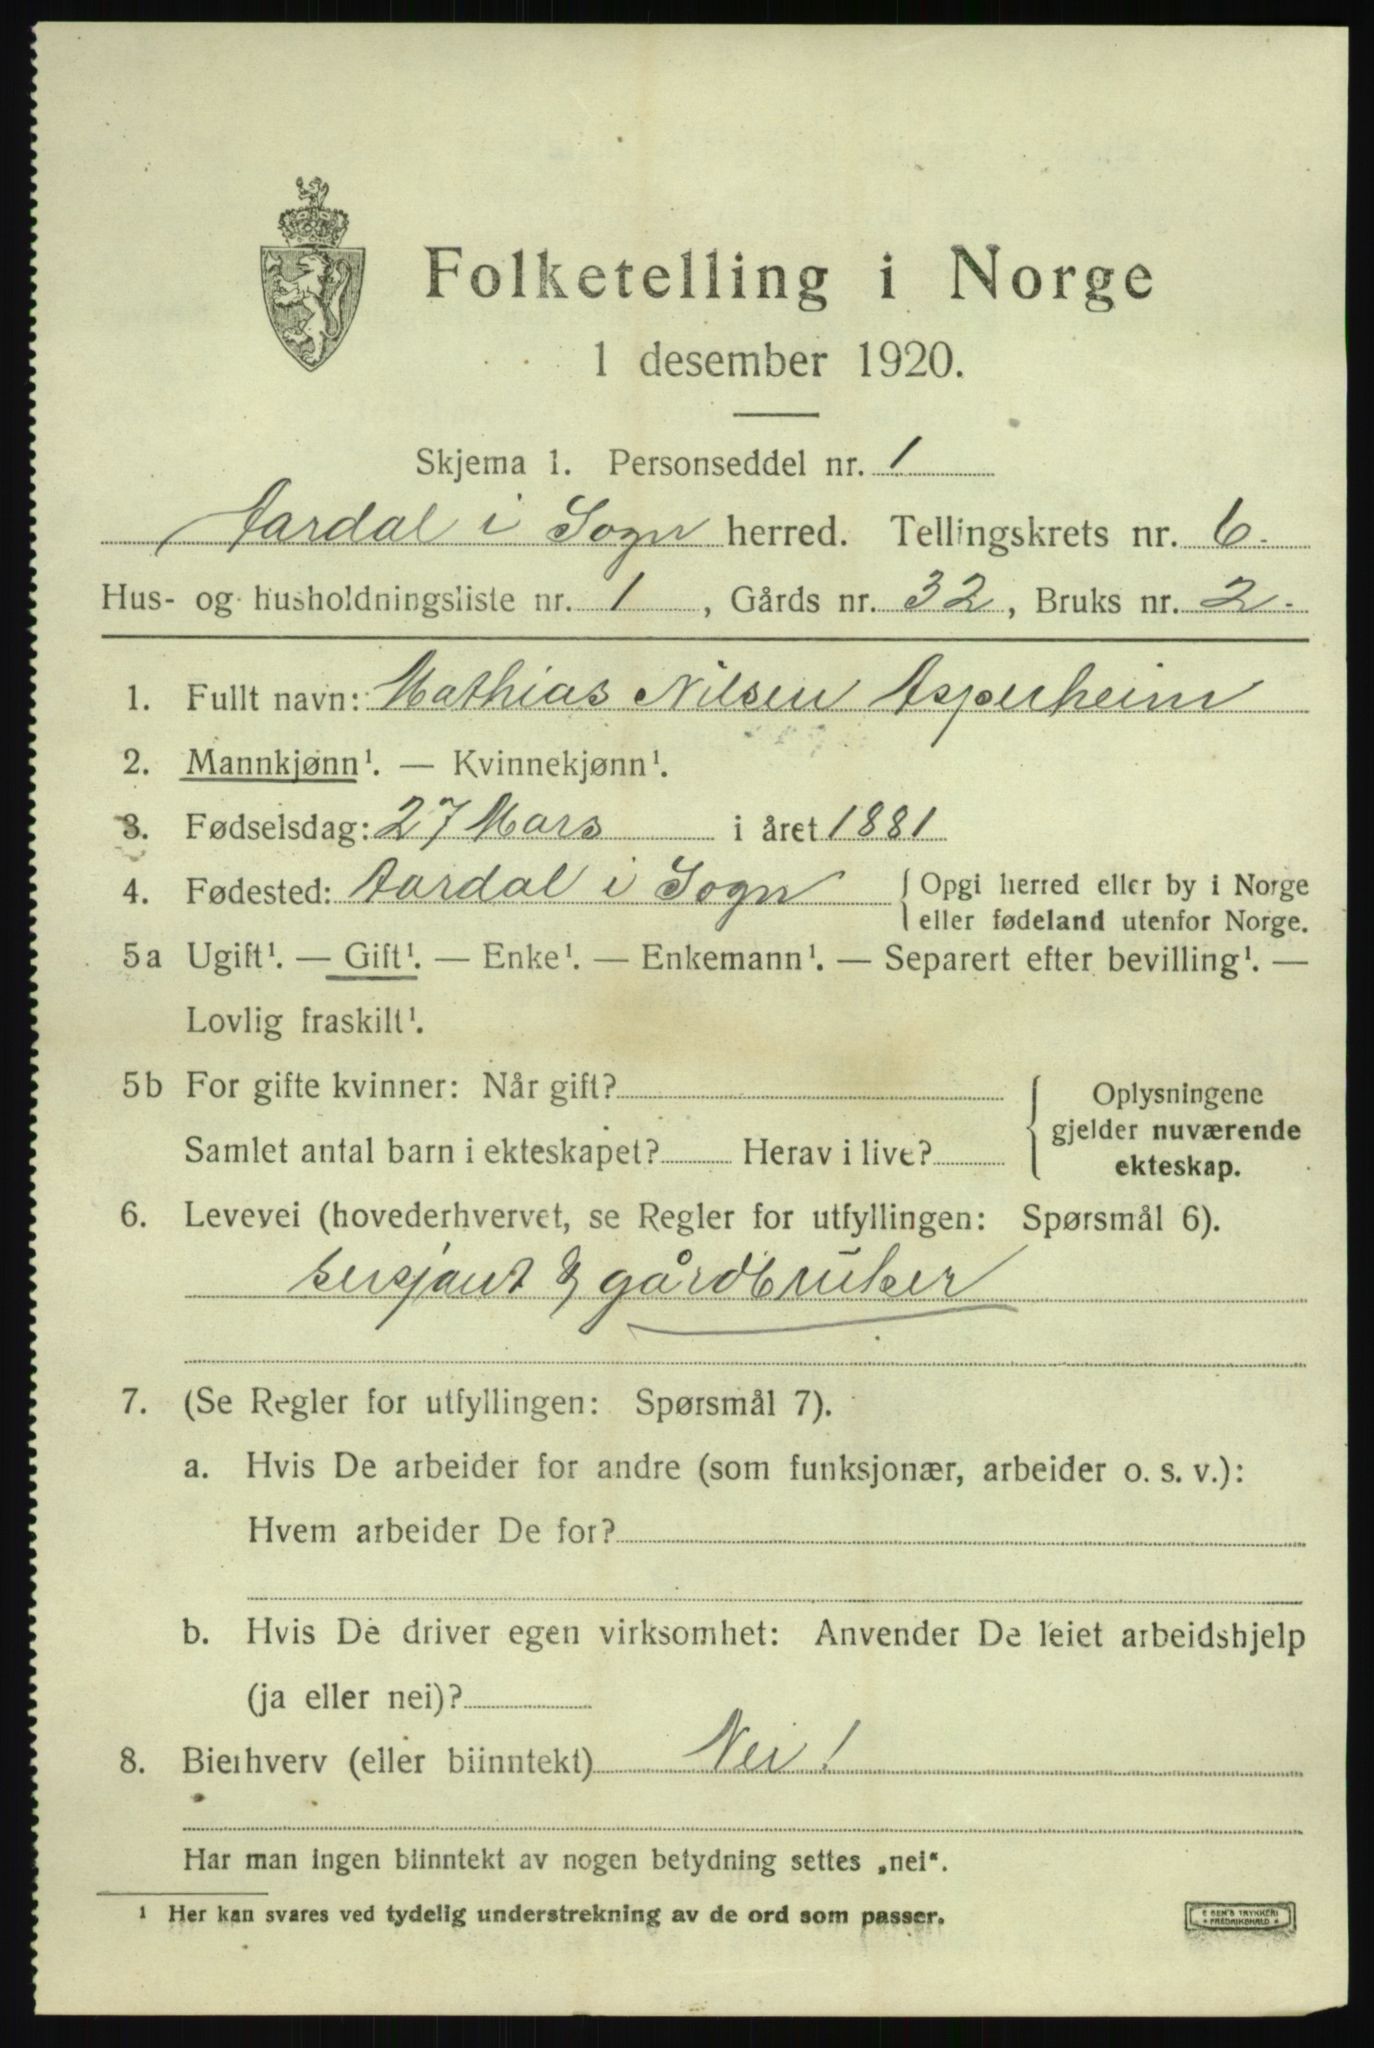 Folketelling i Norge
1 desember 1920.
Skjema 1. Personseddel nr. 1
Aardal i Sogn herred. Tellingskrets nr. 6.
Hus- og husholdningsliste nr. 1, Gårds nr. 32, Bruks nr. 2.
1. Fullt navn: Mathias Nilsen Asperheim
2. Mannkjønn¹. — Kvinnekjønn¹.
3. Fødselsdag: 27 Mars i året 1881
4. Fødested: Aardal i Sogn { Opgi herred eller by i Norge
eller fødeland utenfor Norge.
5a Ugift¹. — Gift¹. — Enke¹. — Enkemann¹. — Separert efter bevilling¹. —
Lovlig fraskilt¹.
5b For gifte kvinner: Når gift?
Samlet antal barn i ekteskapet? Herav i live?
{ Oplysningene
gjelder nuværende
ekteskap.
6. Levevei (hovederhvervet, se Regler for utfyllingen: Spørsmål 6).
sersjant & gårdbruker
7. (Se Regler for utfyllingen: Spørsmål 7).
a. Hvis De arbeider for andre (som funksjonær, arbeider o. s. v.):
Hvem arbeider De for?
b. Hvis De driver egen virksomhet: Anvender De leiet arbeidshjelp
(ja eller nei)?
8. Bierhverv (eller biinntekt) Nei!
Har man ingen biinntekt av nogen betydning settes „nei“.
¹ Her kan svares ved tydelig understrekning av de ord som passer.
TRYKKERI
FREDRIKSHALD